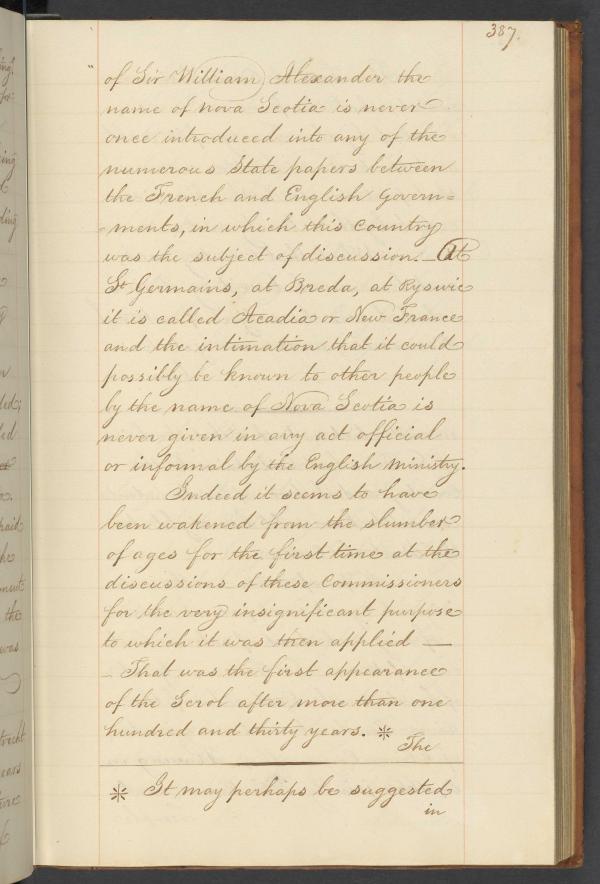 387.
of Sir William Alexander the
name of Nova Scotia is never
once introduced into any of the
numerous State papers between
the French and English Govern=
=ments, in which this Country
was the subject of discussion. — At
St Germains, at Breda, at Ryswic
it is called Acadia or New France
and the intimation that it could
possibly be known to other people
by the name of Nova Scotia is
never given in any act official
or informal by the English Ministry.
Indeed it seems to have
been wakened from the slumber
of ages for the first time at the
discussions of these Commissioners
for the very insignificant purpose
to which it was then applied —
– That was the first appearance
of the Scrol after more than one
hundred and thirty years. *
The
* It may perhaps be suggested
in